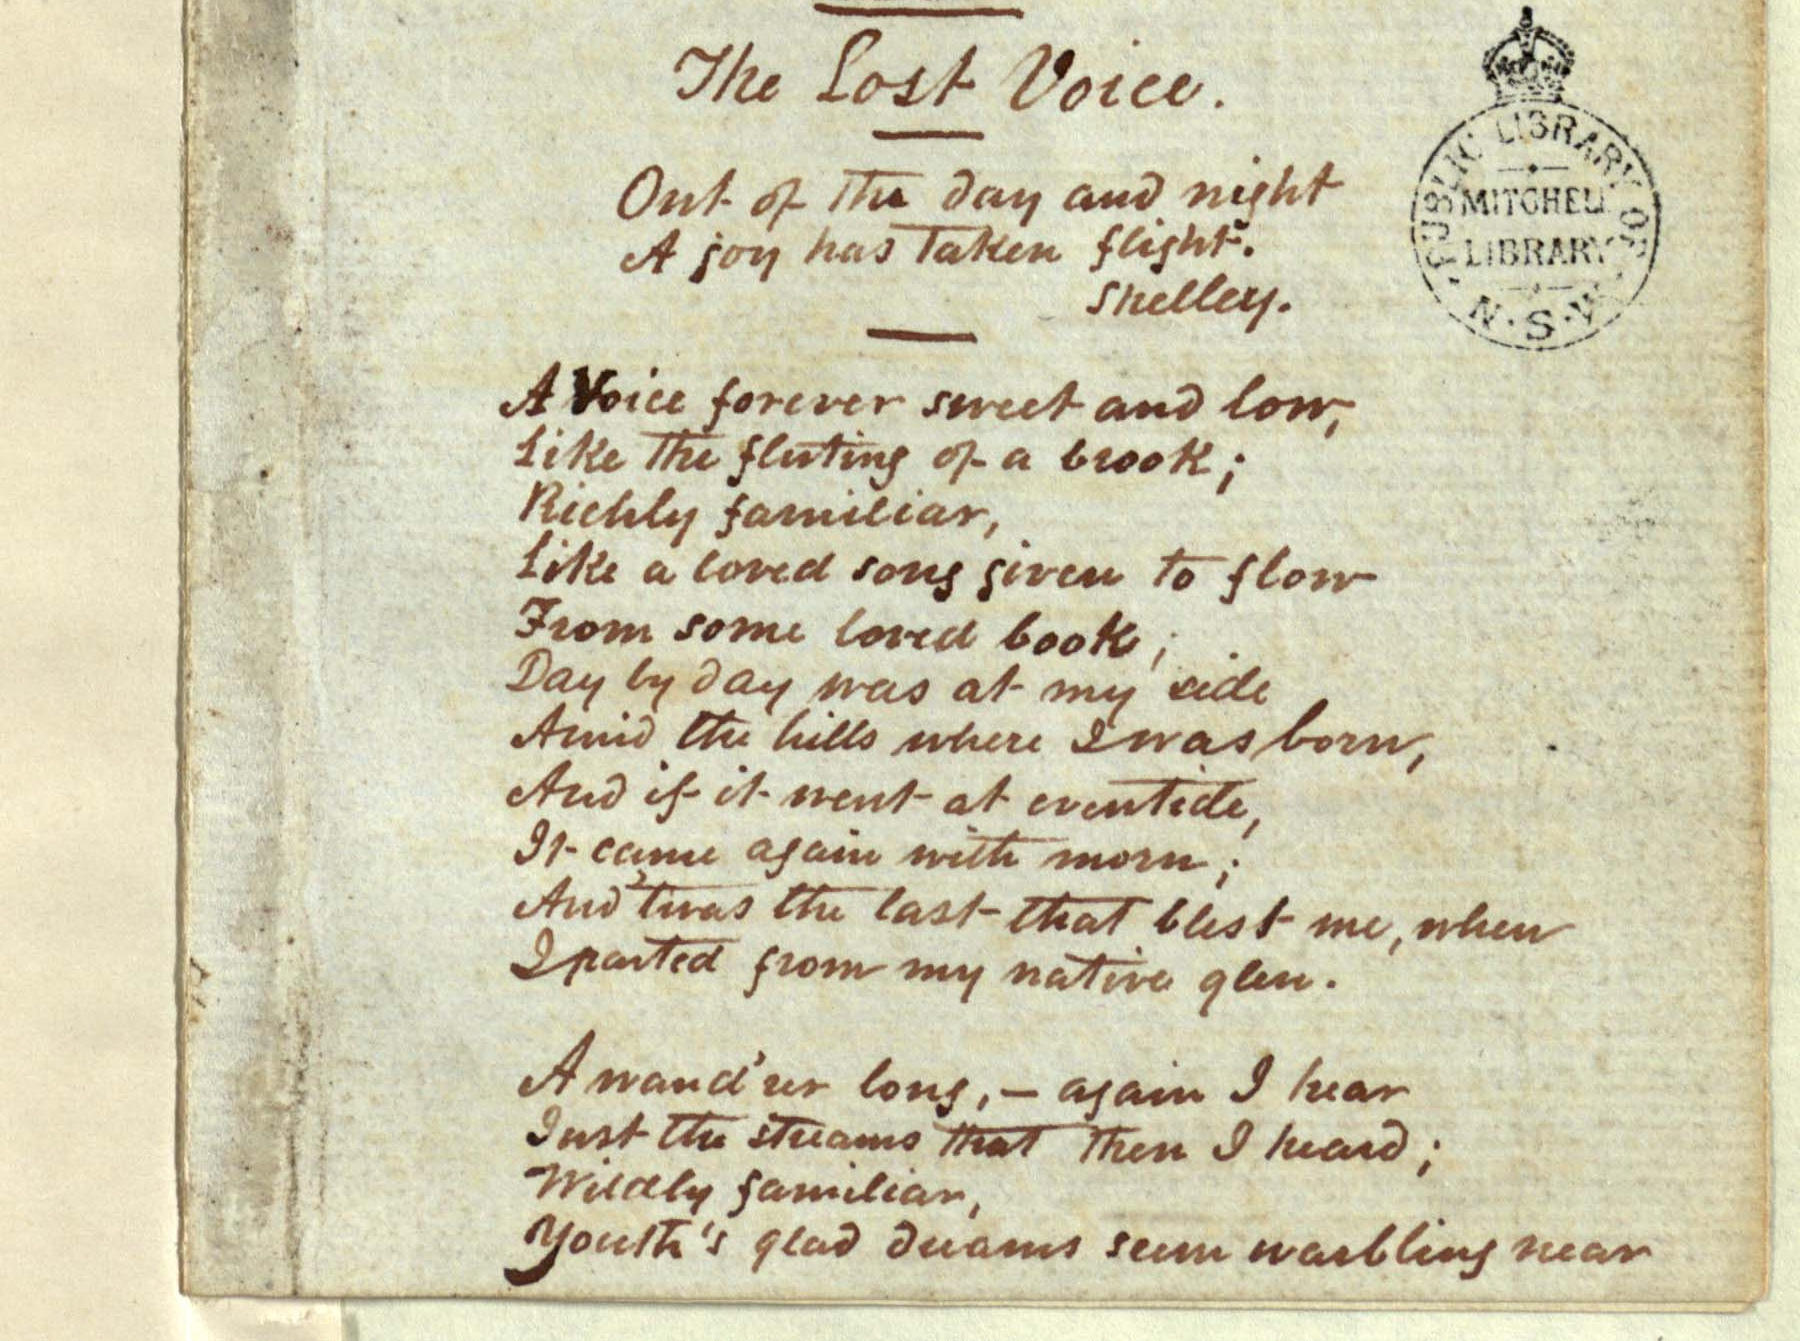 The Lost Voice.
Out of the day and night
A joy has taken flight.
Shelley.
PUBLIC LIBRARY OF
MITCHELL
LIBRARY
N.S.W.
A Voice forever sweet and low,
Like the fluting of a brook;
Richly familiar,
Like a loved song given to flow
From some loved book;
Day by day was at my side
Amid the hills where I was born,
And if it went at eventide,
It came again with morn;
And 'twas the last that blest me, when
I parted from my native glen.
A wand'rer long, — again I hear
Just the streams that then I heard;
Wildly familiar,
Youth's glad dreams seem warbling near